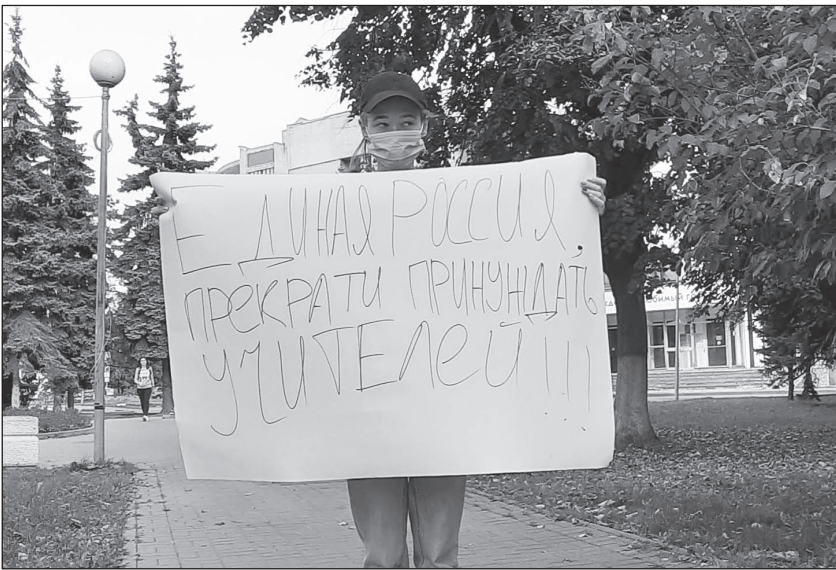 ЕДИНАЯ РОССИЯ,
ПРЕКРАТИ ПРИНУЖДАТЬ
УЧИТЕЛЕЙ!!!